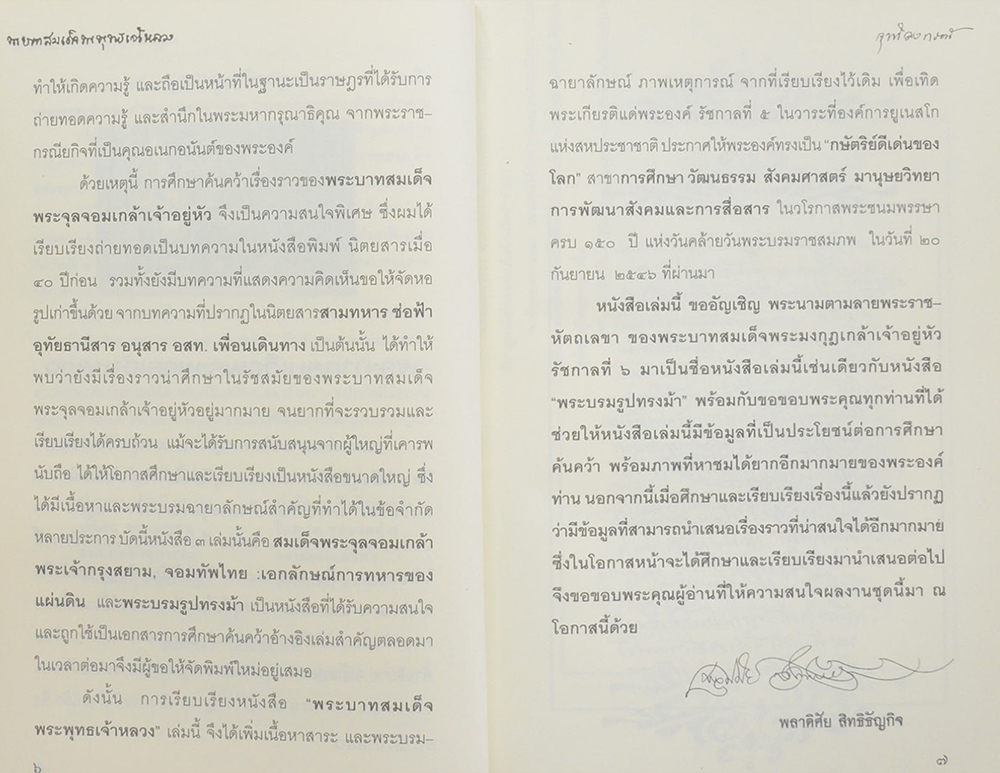 พระบาทสมเด็จพระพุทธเจ้าหลวง
ทำให้เกิดความรู้ และถือเป็นหน้าที่ในฐานะเป็นราษฎรที่ได้รับการ
ถ่ายทอดความรู้ และสำนึกในพระมหากรุณาธิคุณ จากพระราช–
กรณียกิจที่เป็นคุณอเนกอนันต์ของพระองค์
ด้วยเหตุนี้ การศึกษาค้นคว้าเรื่องราวของพระบาทสมเด็จ
พระจุลจอมเกล้าเจ้าอยู่หัว จึงเป็นความสนใจพิเศษ ซึ่งผมได้
เรียบเรียงถ่ายทอดเป็นบทความในหนังสือพิมพ์ นิตยสารเมื่อ
๔๐ ปีก่อน รวมทั้งยังมีบทความที่แสดงความคิดเห็นขอให้จัดหอ
รูปเก่าขึ้นด้วย จากบทความที่ปรากฏในนิตยสารสามทหาร ช่อฟ้า
อุทัยธานีสาร อนุสาร อสท. เพื่อนเดินทาง เป็นต้นนั้น ได้ทำให้
พบว่ายังมีเรื่องราวน่าศึกษาในรัชสมัยของพระบาทสมเด็จ
พระจุลจอมเกล้าเจ้าอยู่หัวอยู่มากมาย จนยากที่จะรวบรวมและ
เรียบเรียงได้ครบถ้วน แม้จะได้รับการสนับสนุนจากผู้ใหญ่ที่เคารพ
นับถือ ได้ให้โอกาสศึกษาและเรียบเรียงเป็นหนังสือขนาดใหญ่ ซึ่ง
ได้มีเนื้อหาและพระบรมฉายาลักษณ์สำคัญที่ทำได้ในข้อจำกัด
หลายประการ บัดนี้หนังสือ ๓ เล่มนั้นคือ สมเด็จพระจุลจอมเกล้า
พระเจ้ากรุงสยาม, จอมทัพไทย :เอกลักษณ์การทหารของ
แผ่นดิน และพระบรมรูปทรงม้า เป็นหนังสือที่ได้รับความสนใจ
และถูกใช้เป็นเอกสารการศึกษาค้นคว้าอ้างอิงเล่มสำคัญตลอดมา
ในเวลาต่อมาจึงมีผู้ขอให้จัดพิมพ์ใหม่อยู่เสมอ
ดังนั้น การเรียบเรียงหนังสือ “พระบาทสมเด็จ
พระพุทธเจ้าหลวง” เล่มนี้ จึงได้เพิ่มเนื้อหาสาระ และพระบรม–
๖
จุฬาลงกรณ์
ฉายาลักษณ์ ภาพเหตุการณ์ จากที่เรียบเรียงไว้เดิม เพื่อเทิด
พระเกียรติแด่พระองค์ รัชกาลที่ ๕ ในวาระที่องค์การยูเนสโก
แห่งสหประชาชาติ ประกาศให้พระองค์ทรงเป็น “กษัตริย์ดีเด่นของ
โลก” สาขาการศึกษา วัฒนธรรม สังคมศาสตร์ มานุษยวิทยา
การพัฒนาสังคมและการสื่อสาร ในวโรกาสพระชนมพรรษา
ครบ ๑๕๐ ปี แห่งวันคล้ายวันพระบรมราชสมภพ ในวันที่ ๒๐
กันยายน ๒๕๔๖ ที่ผ่านมา
หนังสือเล่มนี้ ขออัญเชิญ พระนามตามลายพระราช–
หัตถเลขา ของพระบาทสมเด็จพระมงกุฎเกล้าเจ้าอยู่หัว
รัชกาลที่ ๖ มาเป็นชื่อหนังสือเล่มนี้เช่นเดียวกับหนังสือ
“พระบรมรูปทรงม้า” พร้อมกับขอขอบพระคุณทุกท่านที่ได้
ช่วยให้หนังสือเล่มนี้มีข้อมูลที่เป็นประโยชน์ต่อการศึกษา
ค้นคว้า พร้อมภาพที่หาชมได้ยากอีกมากมายของพระองค์
ท่าน นอกจากนี้เมื่อศึกษาและเรียบเรียงเรื่องนี้แล้วยังปรากฏ
ว่ามีข้อมูลที่สามารถนำเสนอเรื่องราวที่น่าสนใจได้อีกมากมาย
ซึ่งในโอกาสหน้าจะได้ศึกษาและเรียบเรียงมานำเสนอต่อไป
จึงขอขอบพระคุณผู้อ่านที่ให้ความสนใจผลงานชุดนี้มา ณ
โอกาสนี้ด้วย
พลาดิศัย สิทธิธัญกิจ
๗